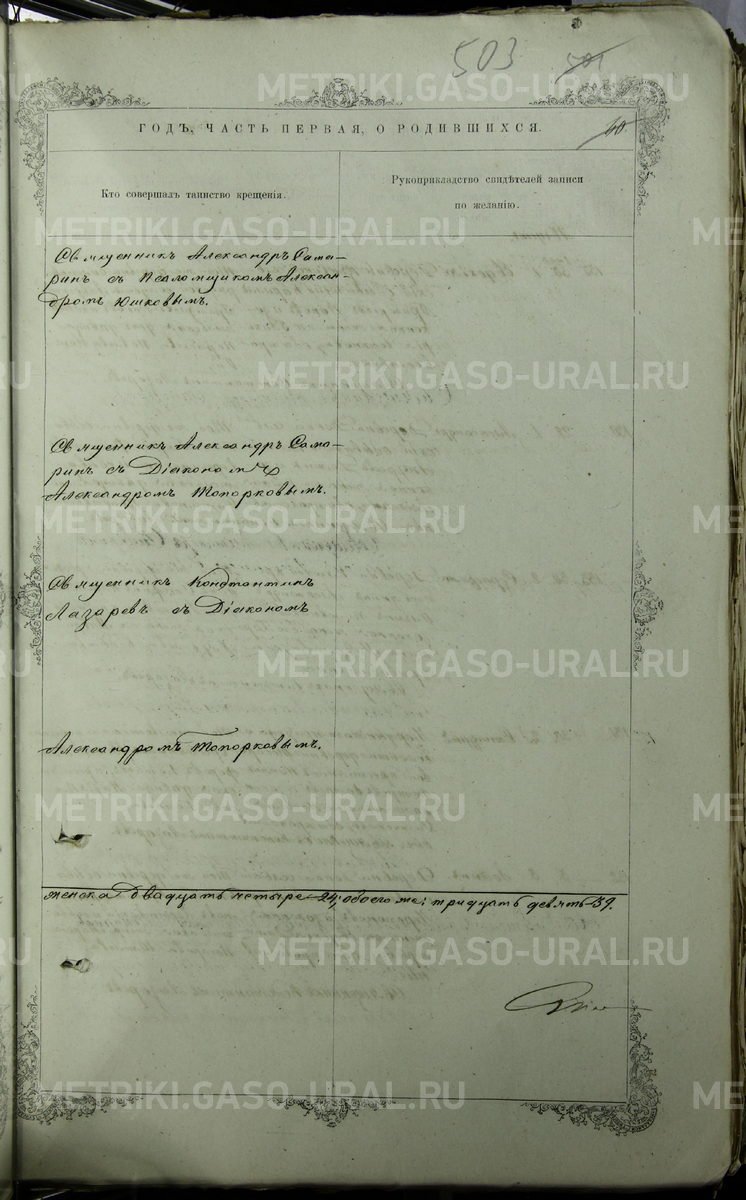 503
501
ГОДЪ, ЧАСТЬ ПЕРВАЯ, О РОДИВШИХСЯ.
60.
Кто совершалъ таинство крещенія.
Рукоприкладство свидѣтелей записи
по желанію.
Священникъ Александръ Сама-
ринъ съ Псаломщикомъ Алексан-
дромъ Юшковымъ.
Священникъ Александръ Сама-
ринъ съ Діакономъ
Александромъ Топорковымъ.
Священникъ Константинъ
Лазаревъ съ Діакономъ
Александромъ Топорковымъ.
женска двадцать четыре-24; обоего же: тридцать девять-39.
METRIKI.GASO-URAL.RU